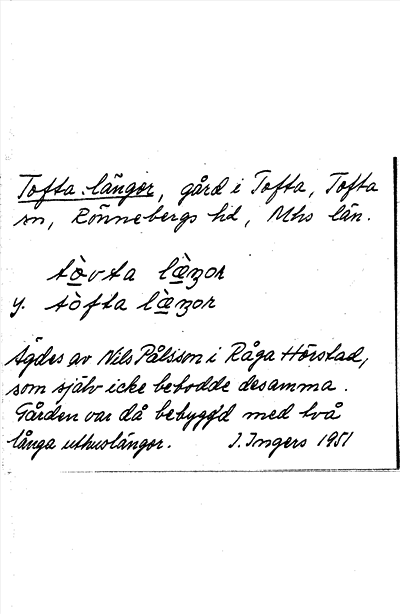 Tofta längor, gård i Tofta, Tofta
sn, Rönnebergs hd, Mhs län.
tòvta læ̀ŋor
y. tòfta læ̀ŋor
Ägdes av Nils Pålsson i Råga Hörstad,
som själv icke bebodde desamma.
Gården var då bebyggd med två
långa uthuslängor. I. Ingers 1951